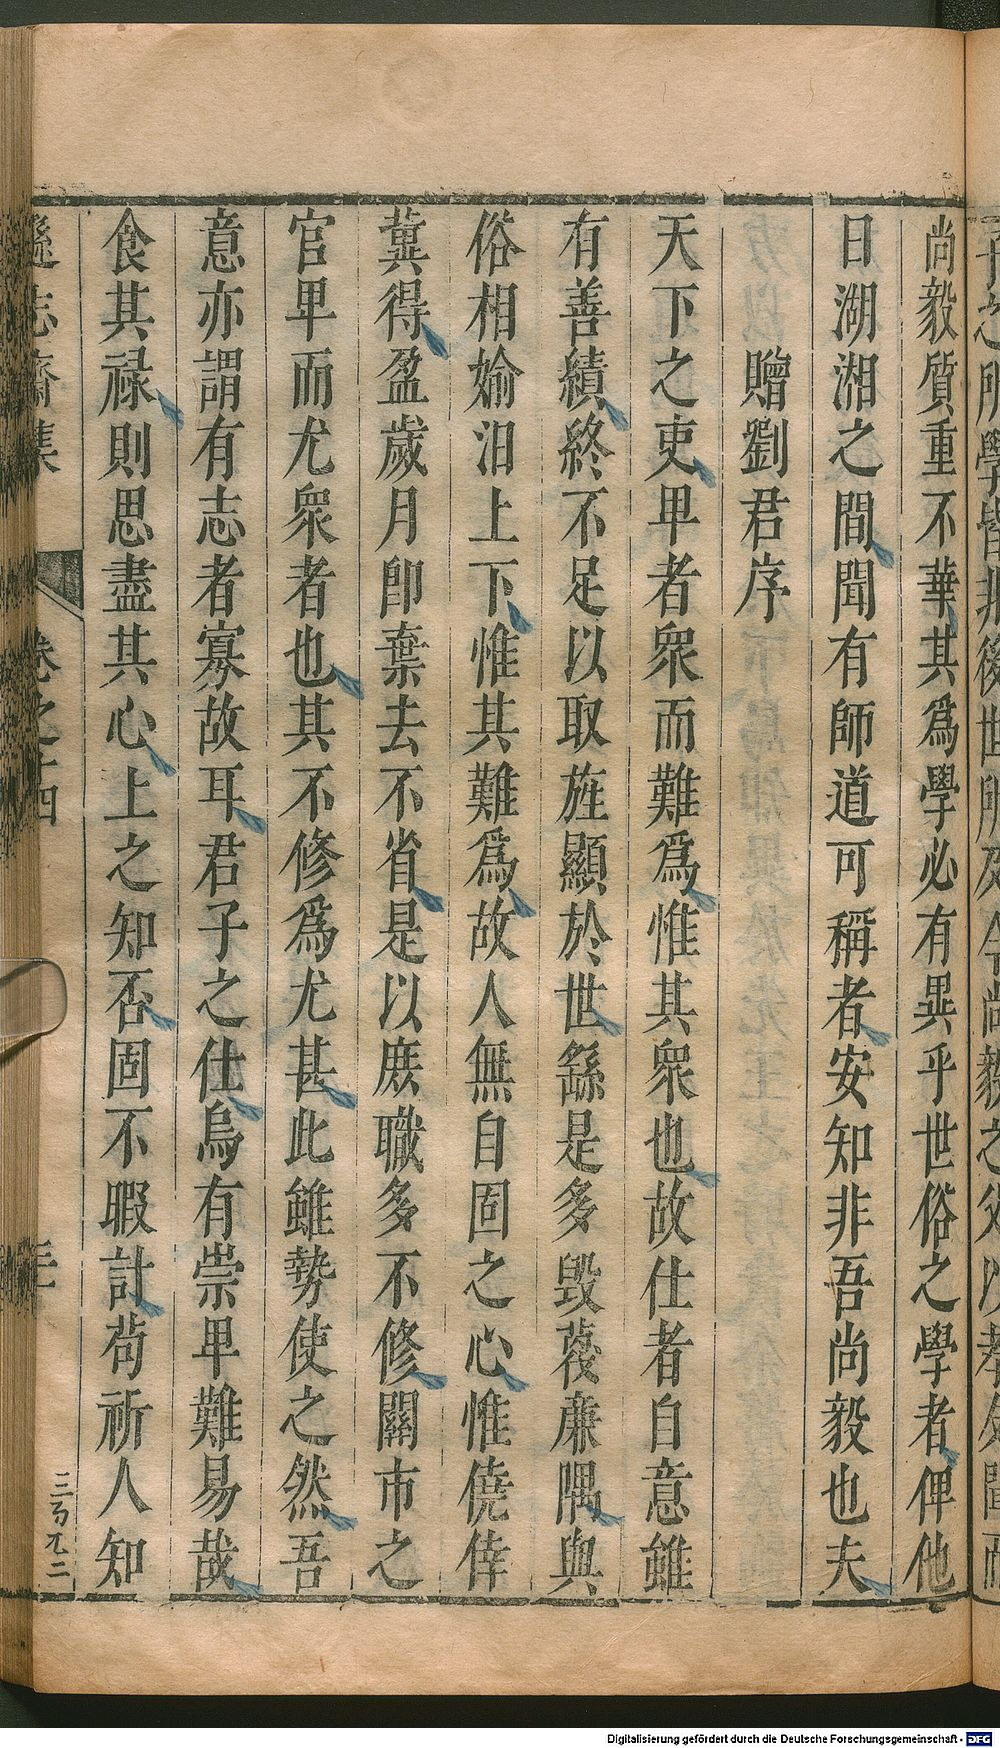 尚毅質重不華其爲學必有異乎世俗之學者俾他
日湖湘之間聞有師道可稱者安知非吾尚毅也夫
贈劉君序
天下之吏卑者眾而難爲惟其眾也故仕者自意雖
有善績終不足以取旌顯於世繇是多毀蔑廉隅與
俗相婾汩上下惟其難爲故人無自固之心惟僥倖
冀得盈歲月卽棄去不省是以庶職多不修關市之
官卑而尤眾者也其不修爲尤甚此雖勢使之然吾
意亦謂有志者寡故耳君子之仕烏有崇卑難易哉
食其祿則思盡其心上之知否固不暇計苟祈人知
遜志齋集
卷之十四
三百九二
Digitalisierung gefördert durch die Deutsche Forschungsgemeinschaft - DFG